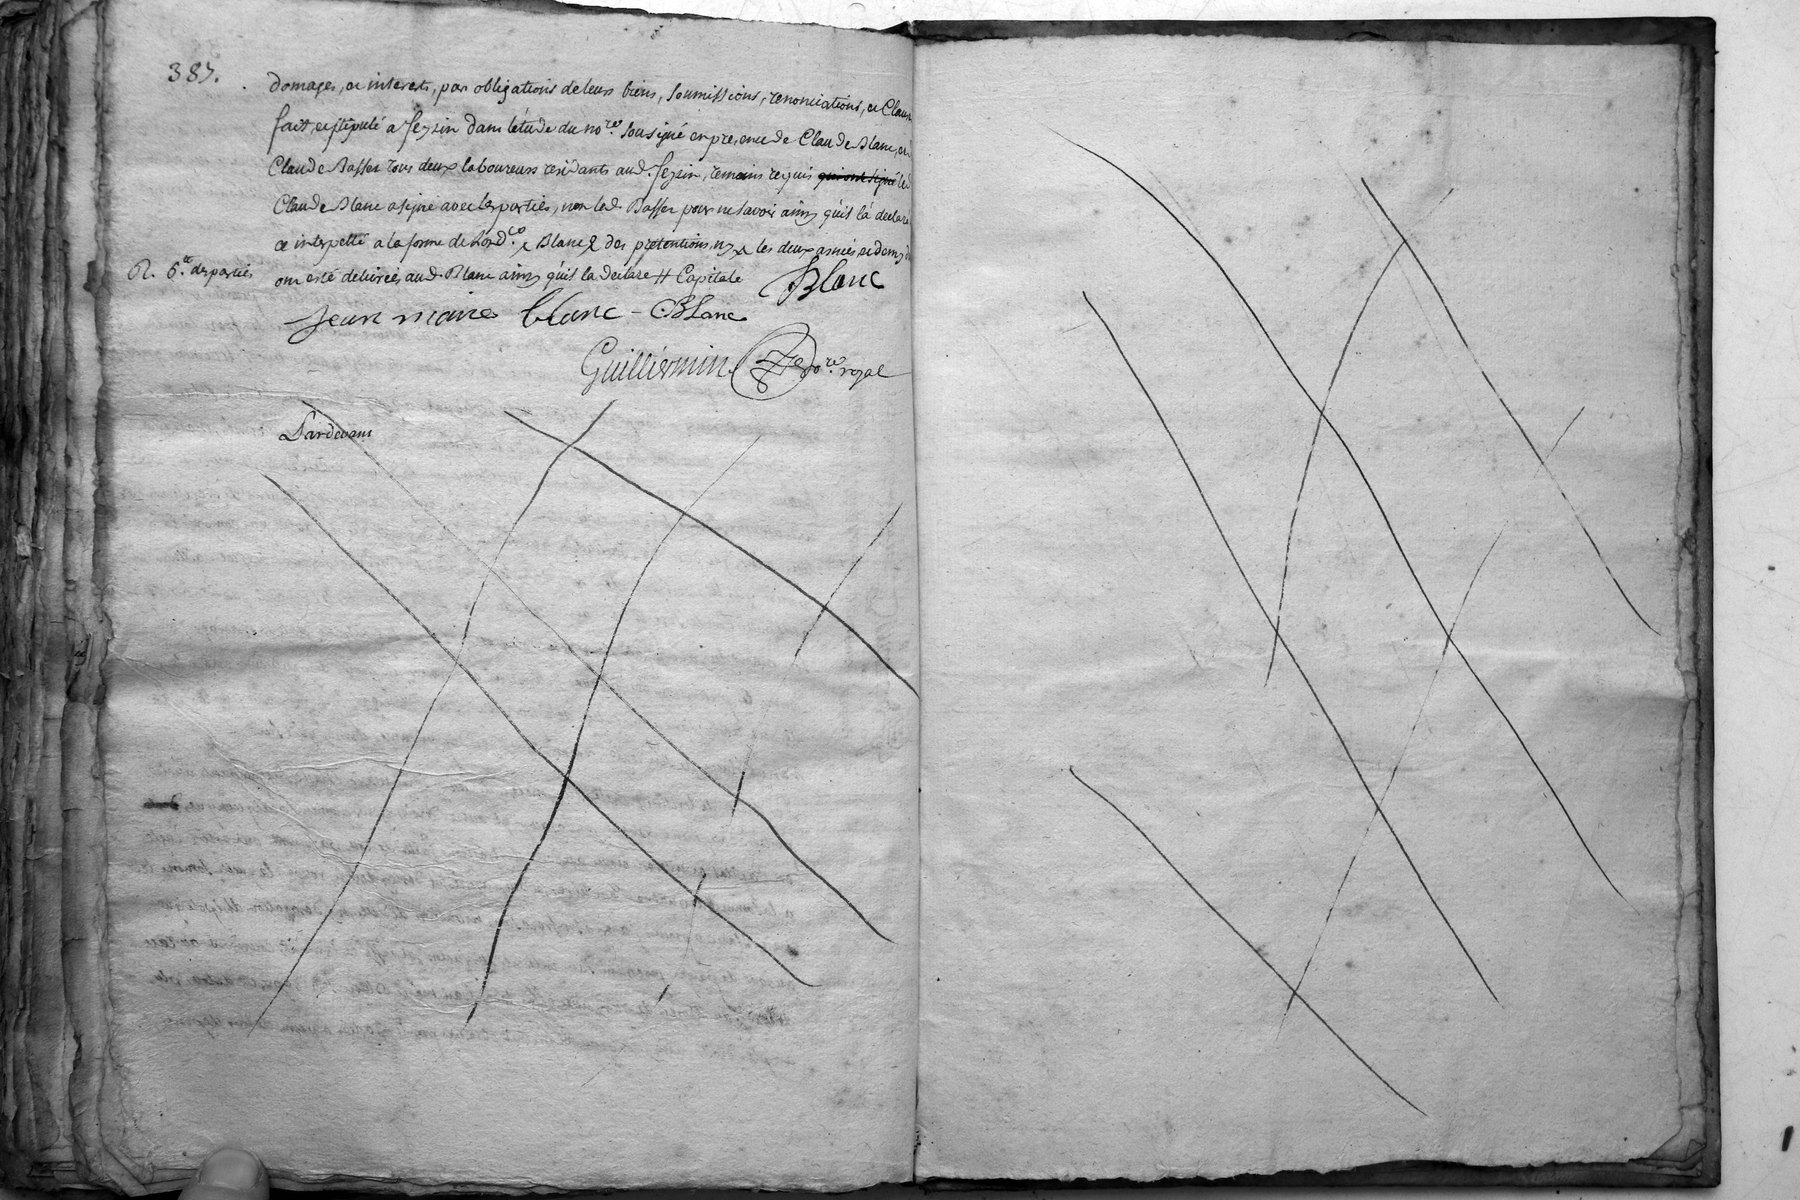 387.
domages, et interests, par obligations de leurs biens, soumissions, renonciations, et Claus
fait, et stipulé a Feysin dans létude du nore. sousigné en presence de Claude Blanc, et
Claude Basset tous deux laboureurs residants aud. Feysin, temoins requis qui ont signé led
Claude Blanc a signé avec les parties, non led. Basset pour ne savoir ainsy qu'il la declaré
et interpellé a la forme de Lordce. Blanc des pretentions les deux années et demy
R. 6.te des parties
ont esté delivrées aud. Blanc ainsy qu'il la declare # Capitale Blanc
Jean maire blanc - CBLanc
Guilliermin nore. royal
Dardevant